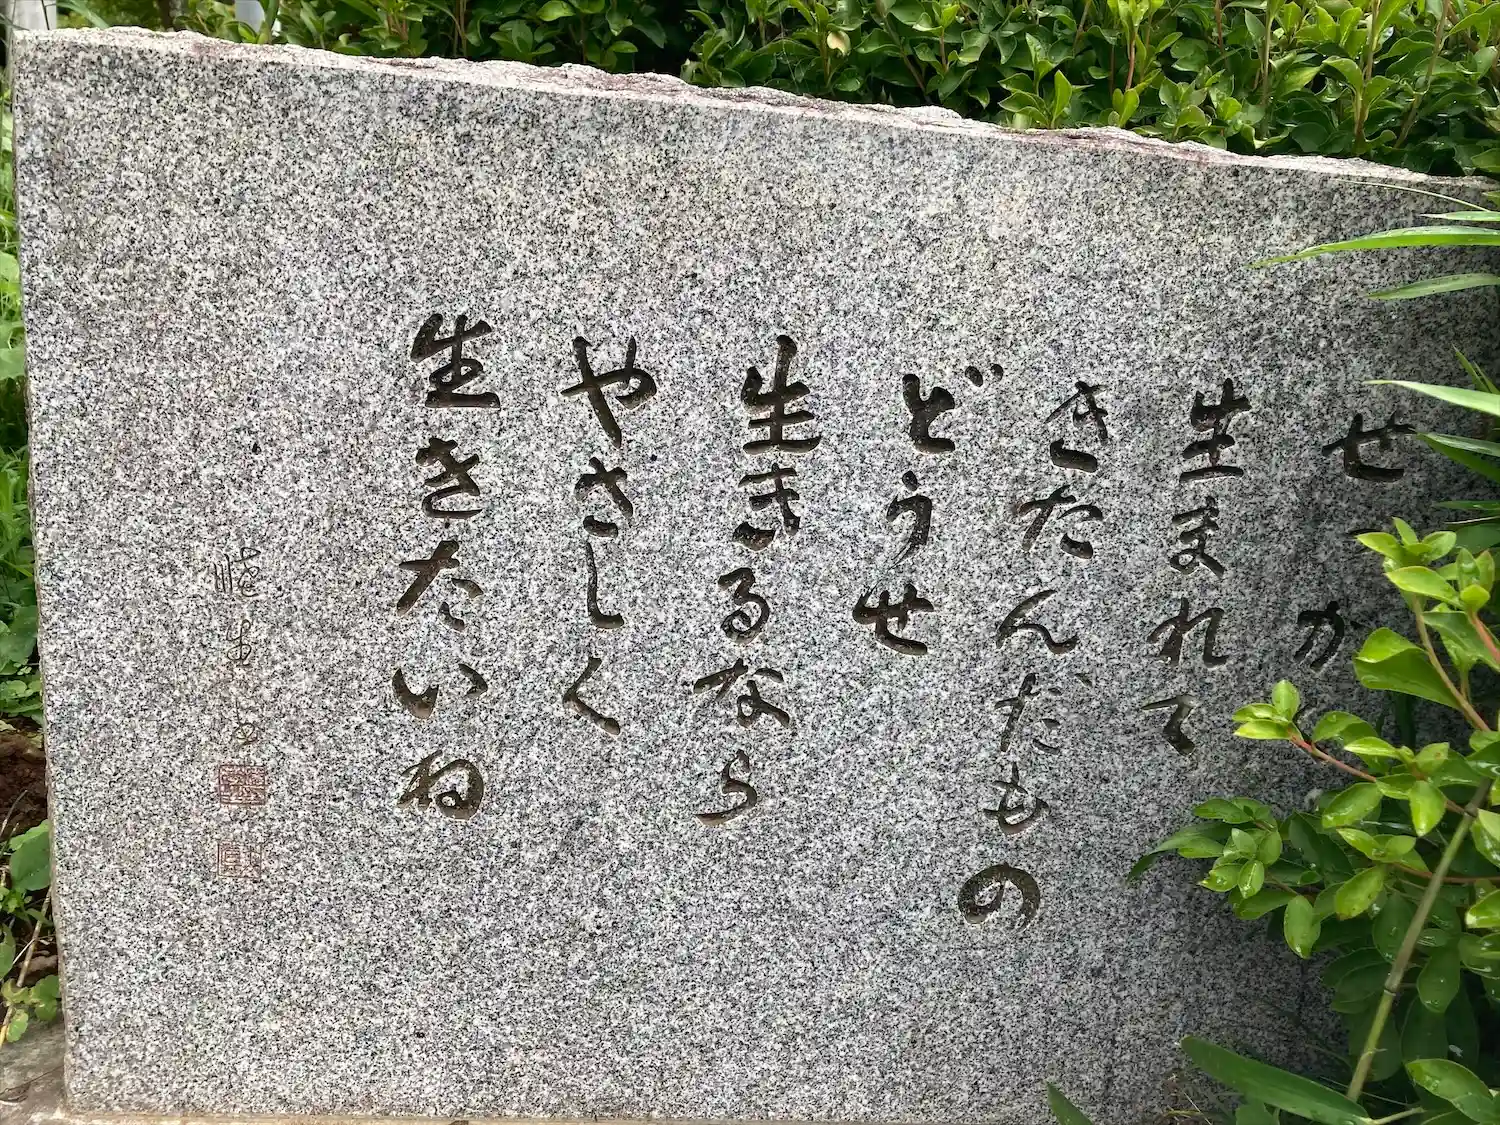 せっかく
生まれて
きたんだもの
どうせ
生きるなら
やさしく
生きたいね